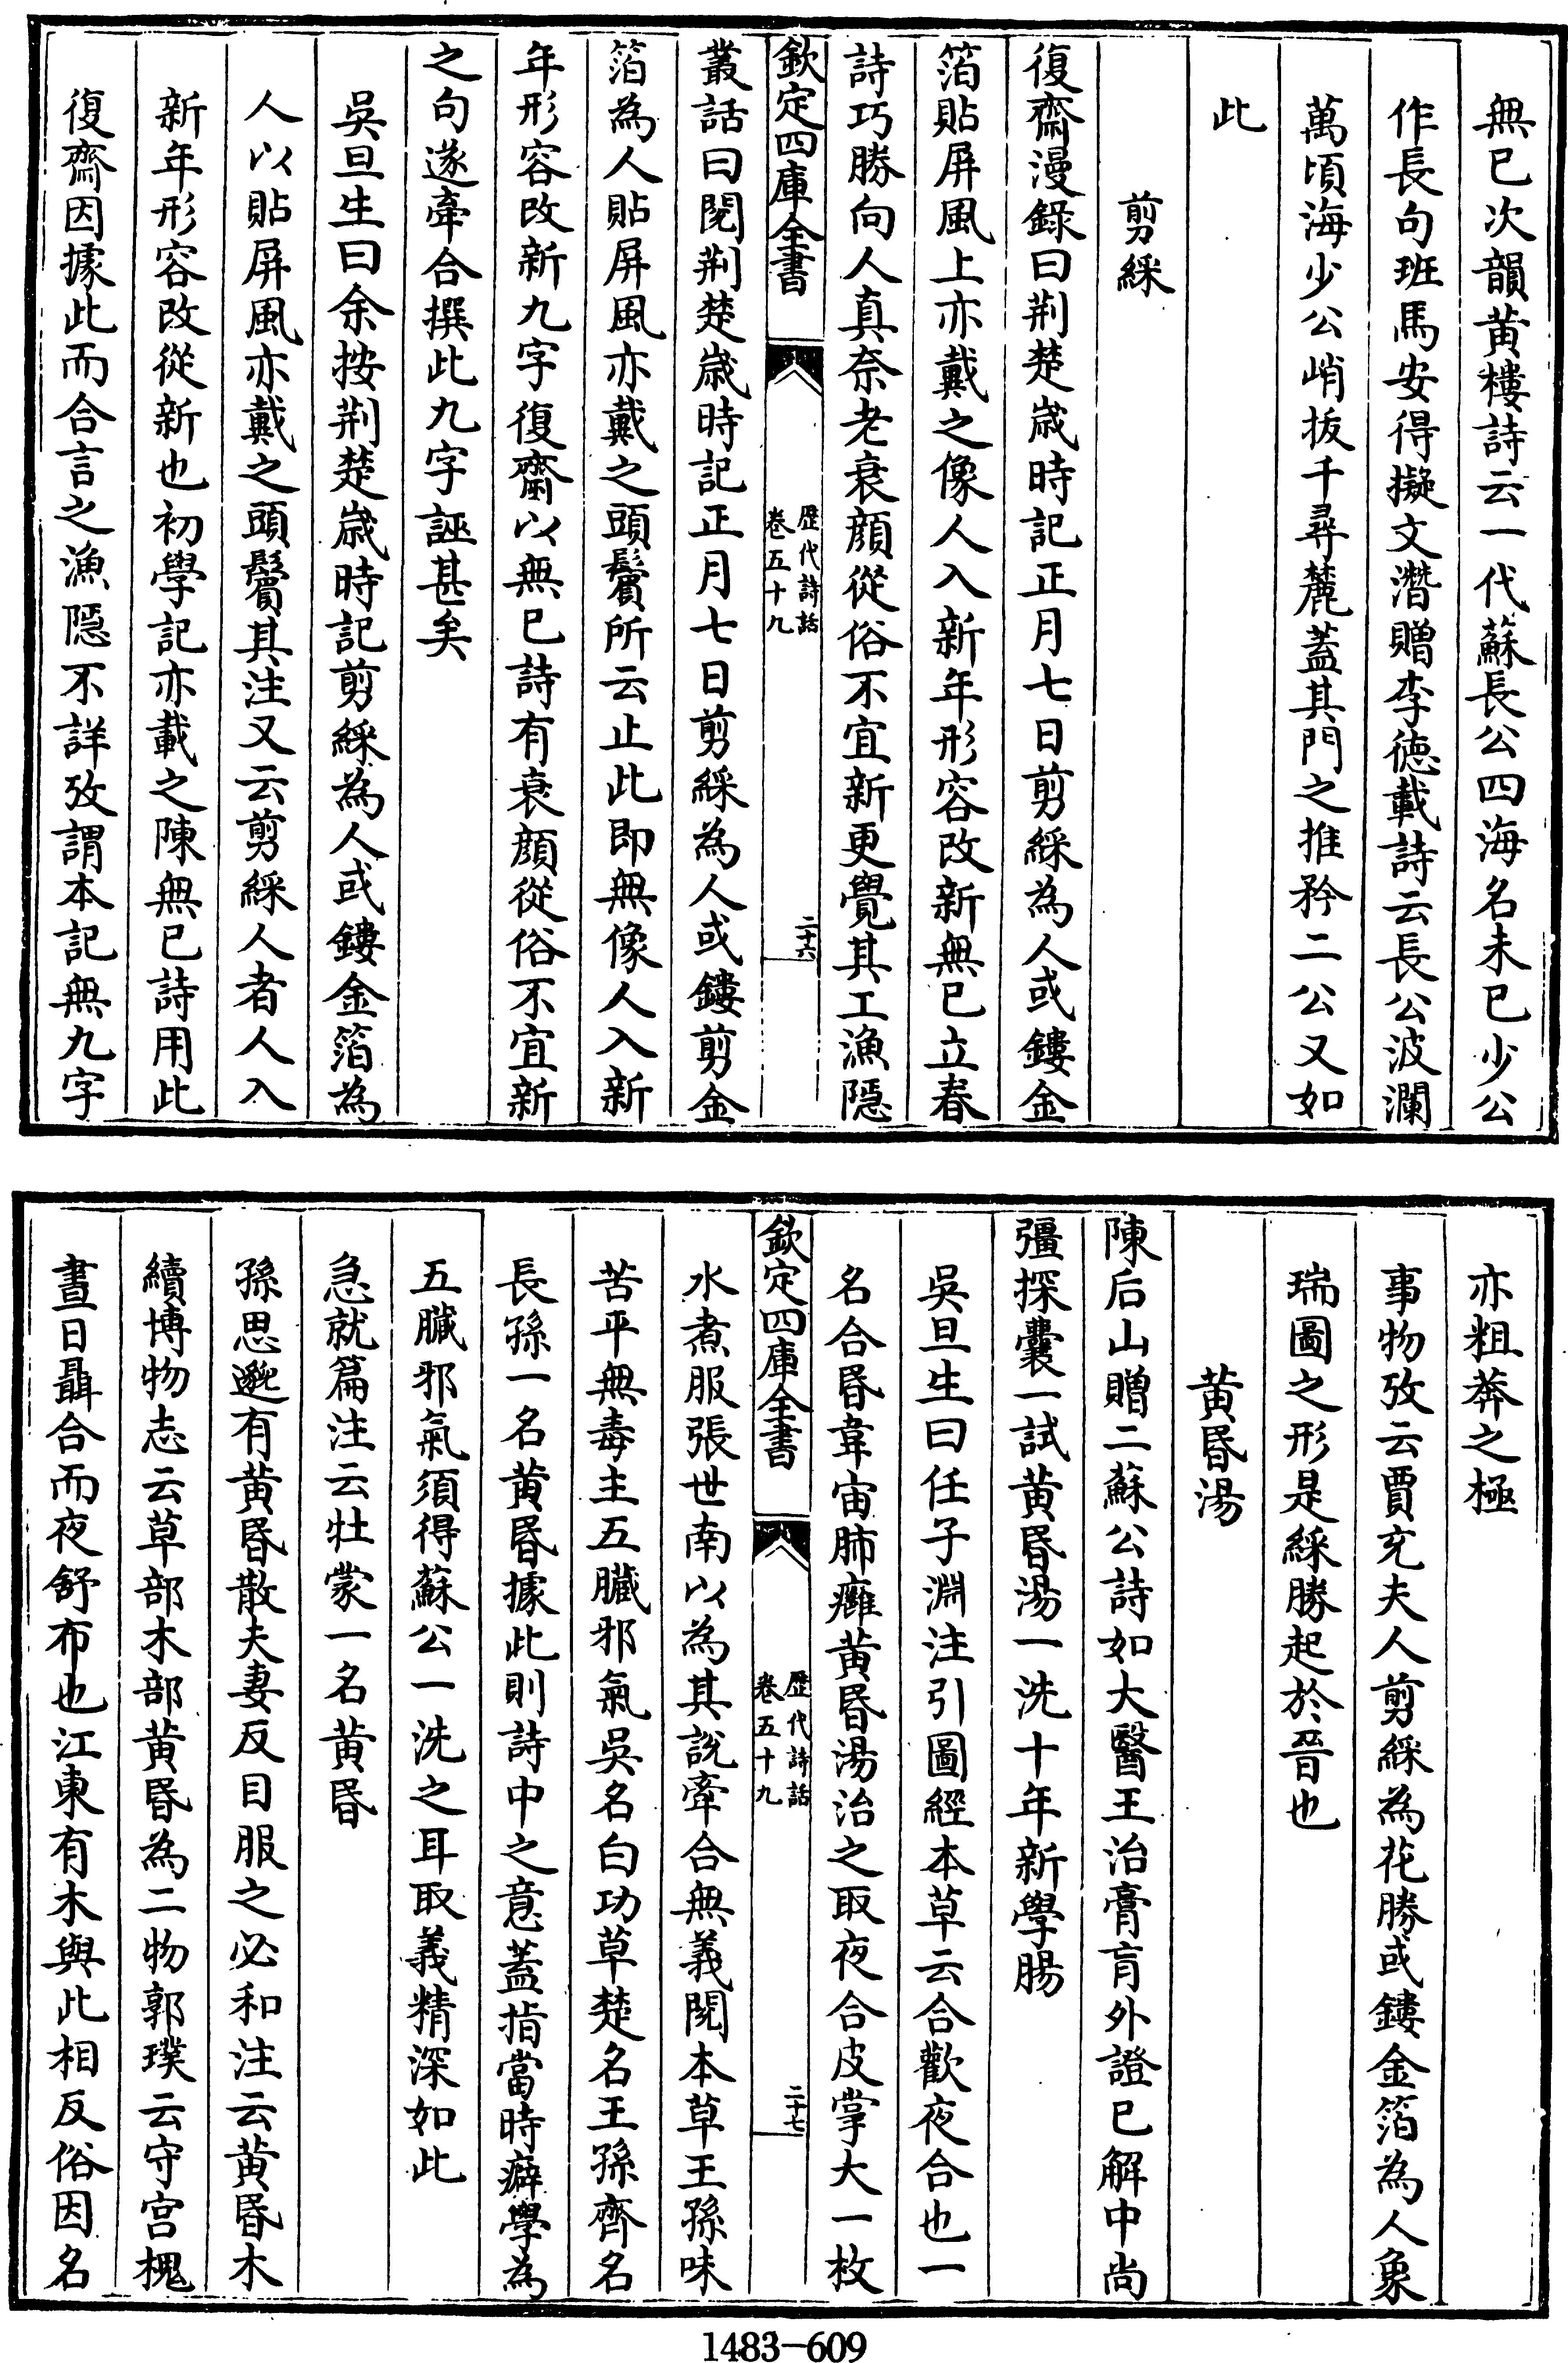 無已次韻黄樓詩云一代蘇長公四海名未已少公
作長句班馬安得擬文潛贈李德載詩云長公波瀾
萬頃海少公峭拔千尋麓蓋其門之推矜二公又如
此
剪綵
復齋漫錄曰荆楚歲時記正月七日剪綵為人或鏤金
箔貼屏風上亦戴之像人入新年形容改新無已立春
詩巧勝向人真奈老衰顔從俗不宜新更覺其工漁隱
欽定四庫全書
歷代詩話
卷五十九
二十六
叢話曰閱荆楚歲時記正月七日剪綵為人或鏤剪金
箔為人貼屏風亦戴之頭鬢所云止此即無像人入新
年形容改新九字復齋以無已詩有衰顔從俗不宜新
之句遂牽合撰此九字誣甚矣
吳旦生曰余按荆楚歲時記剪綵為人或鏤金箔為
人以貼屏風亦戴之頭鬢其注又云剪綵人者人入
新年形容改從新也初學記亦載之陳無已詩用此
復齋因據此而合言之漁隱不詳攷謂本記無九字
亦粗莽之極
事物攷云賈充夫人剪綵為花勝或鏤金箔為人象
瑞圖之形是綵勝起於晉也
黄昏湯
陳后山贈二蘇公詩如大醫王治膏肓外證已解中尚
彊探囊一試黄昏湯一洗十年新學腸
吳旦生曰任子淵注引圖經本草云合歡夜合也一
名合昏韋宙肺癰黄昏湯治之取夜合皮掌大一枚
欽定四庫全書
歷代詩話
卷五十九
二十七
水煮服張世南以為其説牽合無義閱本草王孫味
苦平無毒主五臟邪氣吳名白功草楚名王孫齊名
長孫一名黄昏據此則詩中之意蓋指當時癖學為
五臟邪氣須得蘇公一洗之耳取義精深如此
急就篇注云牡蒙一名黄昏
孫思邈有黄昏散夫妻反目服之必和注云黄昏木
續博物志云草部木部黄昏為二物郭璞云守宫槐
晝日聶合而夜舒布也江東有木與此相反俗因名
1483-609